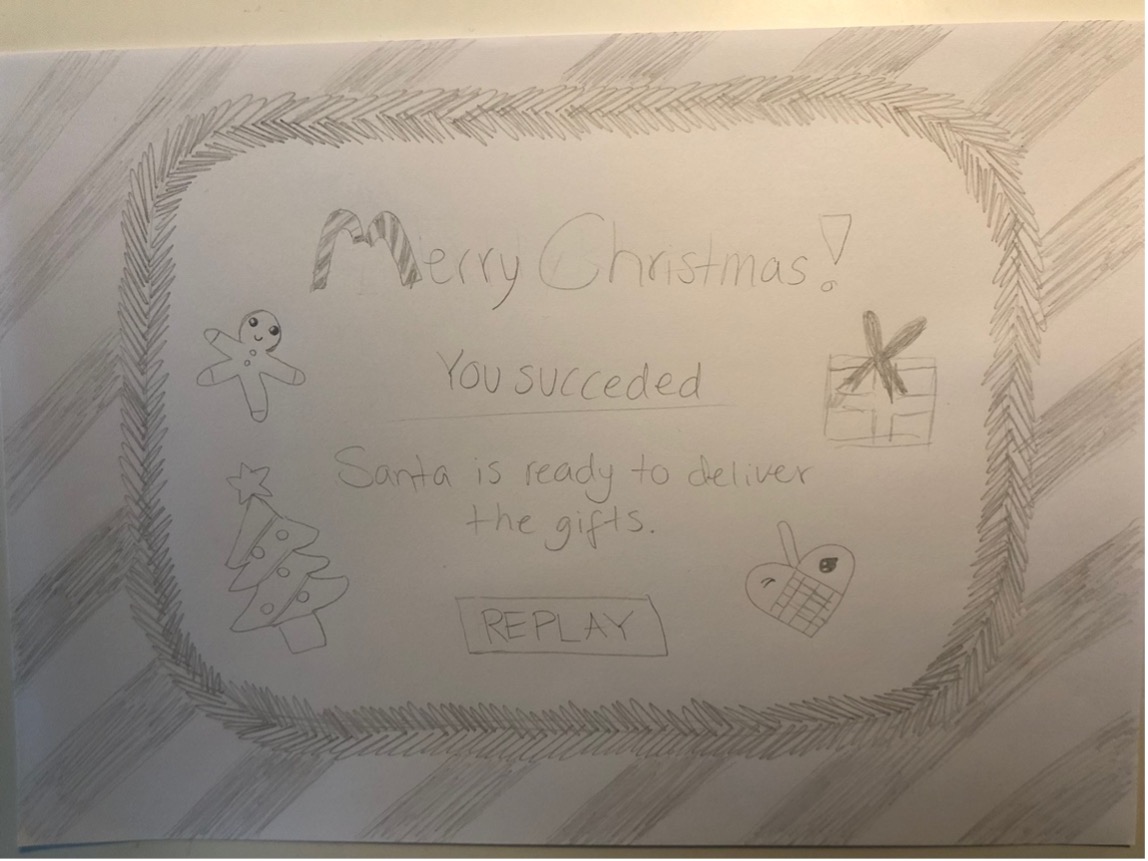 Merry Christmas!
You succeded
Santa is ready to deliver
the gifts.
REPLAY